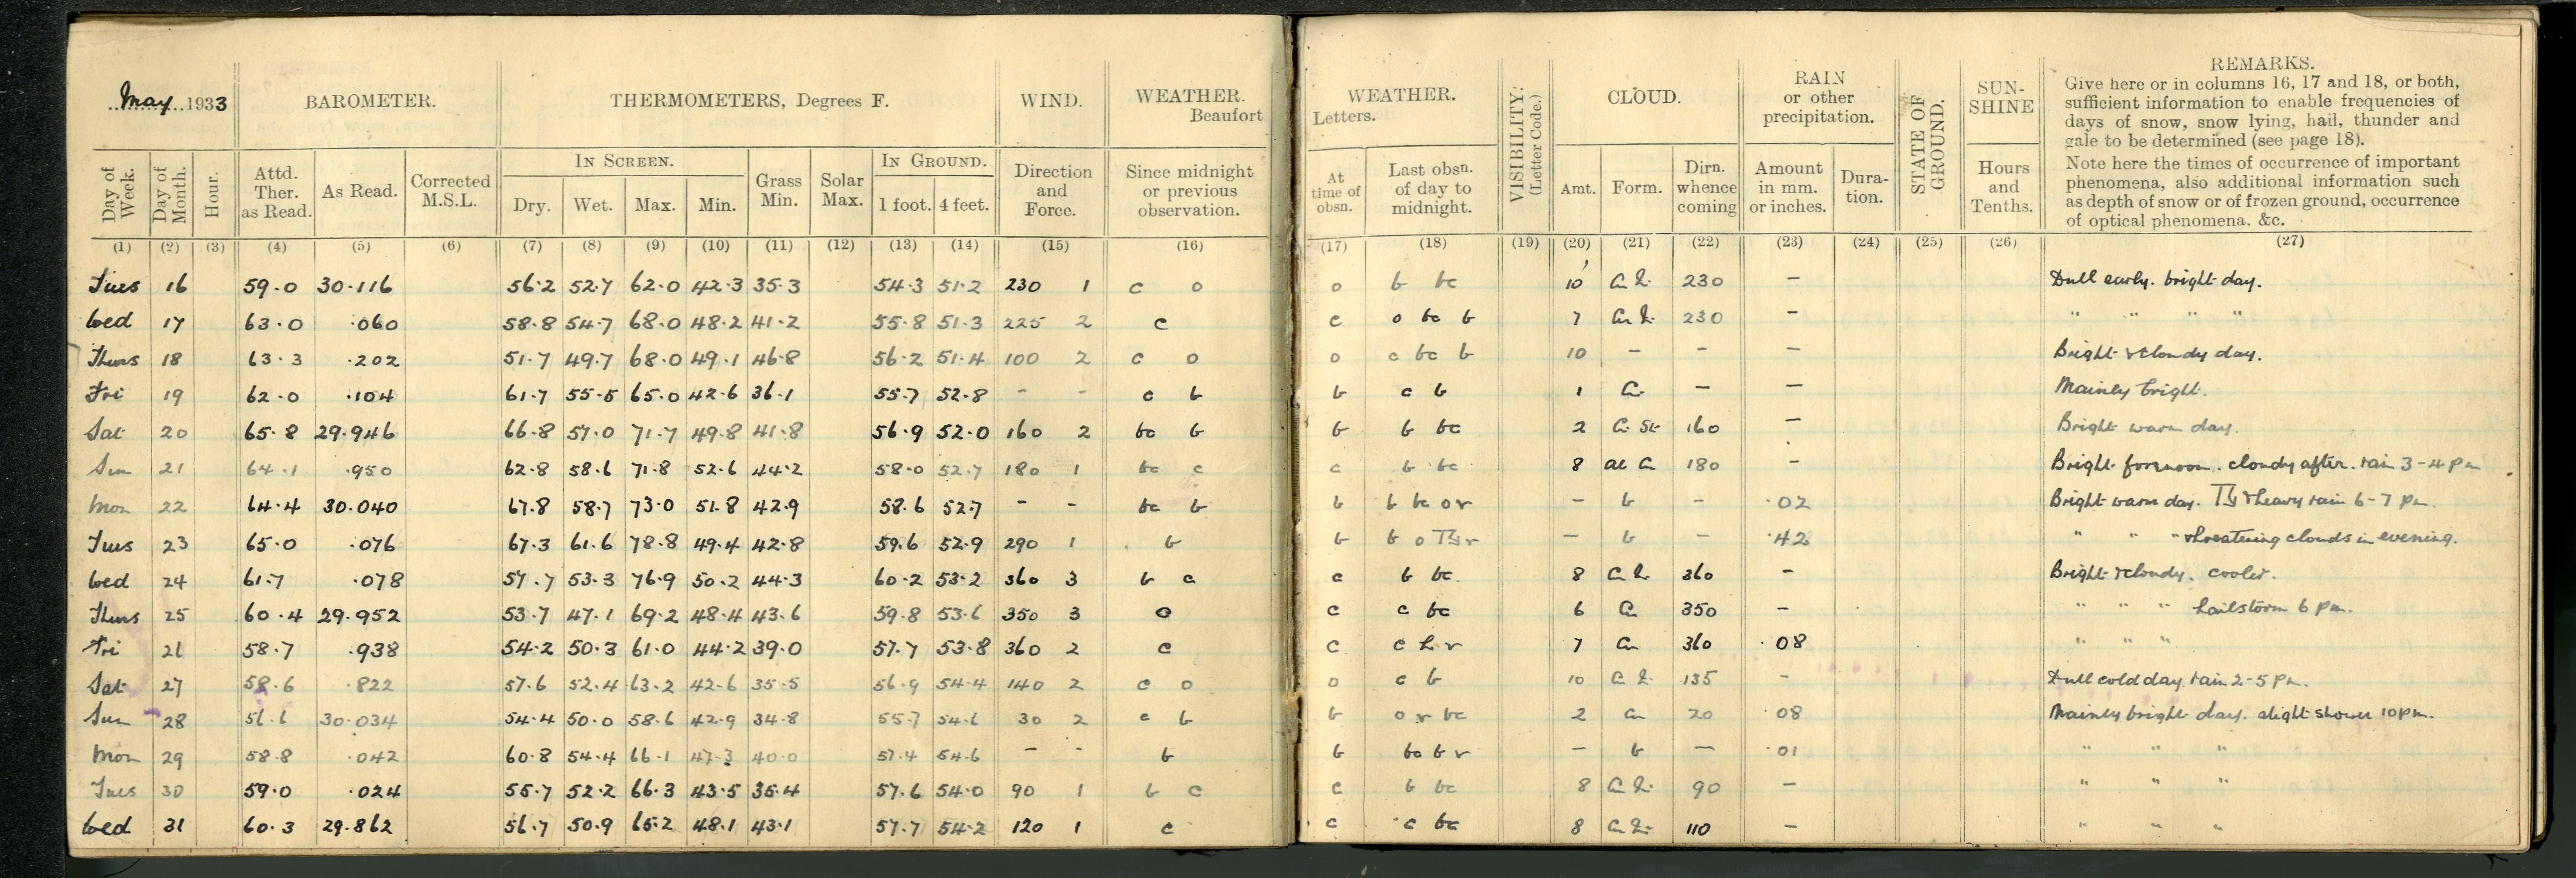 May 1933 BAROMETER. THERMOMETERS, Degrees F. WIND. WEATHER. Beaufort WEATHER. Letters. VISIBILITY: (Letter Code.) CLOUD. RAIN or other precipitation. STATE OF GROUND. SUN-SHINE REMARKS.
Give here or in columns 16, 17 and 18, or both,
sufficient information to enable frequencies of
days of snow, snow lying, hail, thunder and
gale to be determined (see page 18).
Note here the times of occurrence of important
phenomena, also additional information such
as depth of snow or of frozen ground, occurrence
of optical phenomena, &c.
IN SCREEN. IN GROUND.
Day of Week. Day of Month. Hour. Attd. Ther. as Read. As Read. Corrected M.S.L. Dry. Wet. Max. Min. Grass Min. Solar Max. 1 foot. 4 feet. Direction and Force. Since midnight or previous observation. At time of obsn. Last obsn. of day to midnight. Amt. Form. Dirn. whence coming Amount in mm. or inches. Dura-tion. Hours and Tenths.
(1) (2) (3) (4) (5) (6) (7) (8) (9) (10) (11) (12) (13) (14) (15) (16) (17) (18) (19) (20) (21) (22) (23) (24) (25) (26) (27)
Tues 16 59.0 30.116 56.2 52.7 62.0 42.3 35.3 54.3 51.2 230 1 c o o b bc 10 230 – Dull early. bright day.
Wed 17 63.0 .060 58.8 54.7 68.0 48.2 41.2 55.8 51.3 225 2 c c o bc b 7 230 – " " " "
Thurs 18 63.3 .202 51.7 49.7 68.0 49.1 46.8 56.2 51.4 100 2 c o o c bc b 10 – – – Bright & cloudy day.
Fri 19 62.0 .104 61.7 55.5 65.0 42.6 36.1 55.7 52.8 – – c b b c b 1 Ci – – Mainly bright.
Sat 20 65.8 29.946 66.8 57.0 71.7 49.8 41.8 56.9 52.0 160 2 bc b b b bc 2 Ci St 160 – Bright warm day.
Sun 21 64.1 .950 62.8 58.6 71.8 52.6 44.2 58.0 52.7 180 1 bc c c b bc 8 180 – Bright forenoon. cloudy after. rain 3-4 pm
Mon 22 64.4 30.040 67.8 58.7 73.0 51.8 42.9 58.6 52.7 – – bc b b b bc o r – b – .02 Bright warm day. & heavy rain 6-7 pm.
Tues 23 65.0 .076 67.3 61.6 78.8 49.4 42.8 59.6 52.9 290 1 b b b o r – b – .42 " " " & threatening clouds in evening.
Wed 24 61.7 .078 57.7 53.3 76.9 50.2 44.3 60.2 53.2 360 3 b c c b bc. 8 360 – Bright & cloudy. cooler.
Thurs 25 60.4 29.952 53.7 47.1 69.2 48.4 43.6 59.8 53.6 350 3 o c c bc 6 Cu 350 – " " " hailstorm 6 pm.
Fri 26 58.7 .938 54.2 50.3 61.0 44.2 39.0 57.7 53.8 360 2 c c c h r 7 Cu 360 .08 " " "
Sat 27 58.6 .822 57.6 52.4 63.2 42.6 35.5 56.9 54.4 140 2 c o o c b 10 135 – Dull cold day. rain 2-5 pm.
Sun 28 56.6 30.034 54.4 50.0 58.6 42.9 34.8 55.7 54.6 30 2 c b b o r bc 2 Cu 20 .08 Mainly bright day. slight shower 10 pm.
Mon 29 58.8 .042 60.8 54.4 66.1 47.3 40.0 57.4 54.6 – – b b bc b r – b – .01 " " "
Tues 30 59.0 .024 55.7 52.2 66.3 43.5 35.4 57.6 54.0 90 1 b c c b bc 8 90 – " " "
Wed 31 60.3 29.862 56.7 50.9 65.2 48.1 43.1 57.7 54.2 120 1 c c c bc 8 110 – " " "